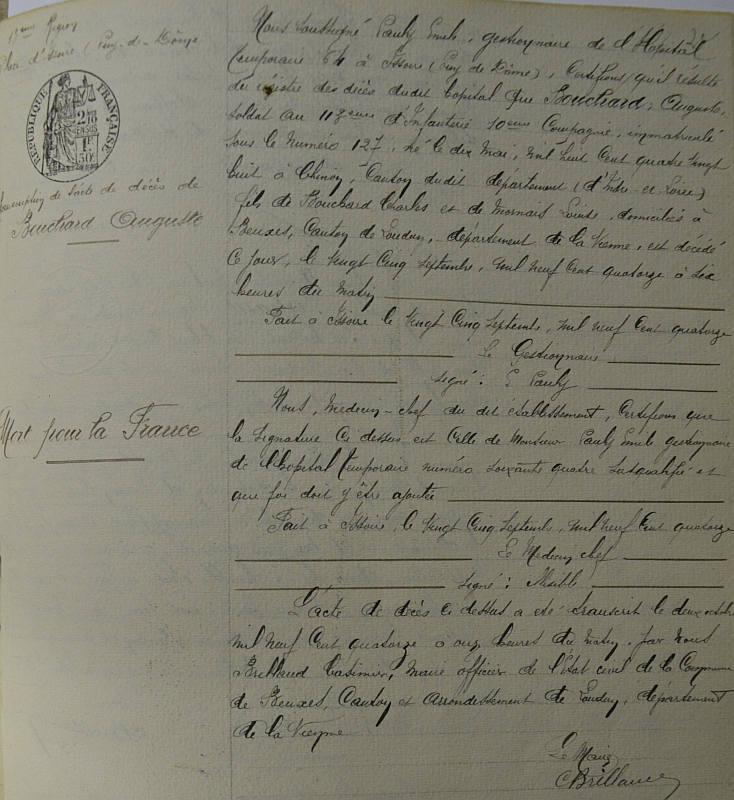 13eme Région
Place d'Issoire (Puy-de-Dôme
RÉPUBLIQUE FRANÇAISE
2/10
EN SUS
1F
50c
Transcription de l'acte de décès de
Bouchard Auguste
Mort pour la France
Nous soussigné Pauly Emile, gestionnaire de l'Hôpital
temporaire 64 à Issoire (Puy de Dôme), Certifions qu'il résulte
du registre des décès dudit hôpital que Bouchard, Auguste,
soldat au 113eme d'Infanterie 10eme Compagnie, immatriculé
sous le numéro 127, né le dix Mai, mil huit Cent quatre vingt
huit à Chinon, Canton dudit département (d'Indre-et-Loire)
fils de Bouchard Charles et de Mornais Louise, domiciliés à
Beuxes, Canton de Loudun, département de la Vienne, est décédé
Ce jour, le vingt Cinq Septembre, mil neuf Cent quatorze à six
heures du matin
Fait à Issoire le vingt Cinq Septembre, mil neuf Cent quatorze
Le Gestionnaire
signé : E Pauly
Nous, Médecin-chef du dit établissement, Certifions que
la signature Ci dessus est Celle de Monsieur Pauly Emile gestionnaire
de l'hôpital temporaire numéro soixante quatre susqualifié et
que foi doit y être ajoutée
Fait à Issoire, le vingt Cinq Septembre, mil neuf Cent quatorze
Le Médecin chef
signé : Illisible
L'acte de décès Ci dessus a été transcrit le deux octobre
mil neuf Cent quatorze à onze heures du matin, par nous
Brillaud Casimir, Maire officier de l'Etat civil de la Commune
de Beuxes, Canton et arrondissement de Loudun, département
de la Vienne
Le Maire
CBrillaud